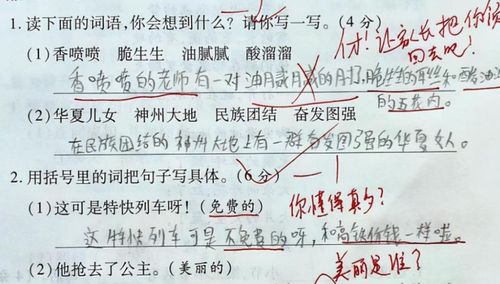 1.读下面的词语,你会想到什么?请你写一写。(4分)
什么!让家长把你领
回去吧!
(1)香喷喷 脆生生 油腻腻 酸溜溜
香喷喷的老师有一对油腻腻的肘,脆生生的耳朵和酸溜
的五花肉。
(2)华夏儿女 神州大地 民族团结 奋发图强
在民族团结的神州大地上有一群奋发图强的华夏女人。
2.用括号里的词把句子写具体。(6分)
(1)这可是特快列车呀!(免费的)
你懂得真多?
这特快列车可是不免费的呀,和高铁价钱一样啦。
(2)他抢去了公主。(美丽的)
美丽是谁?